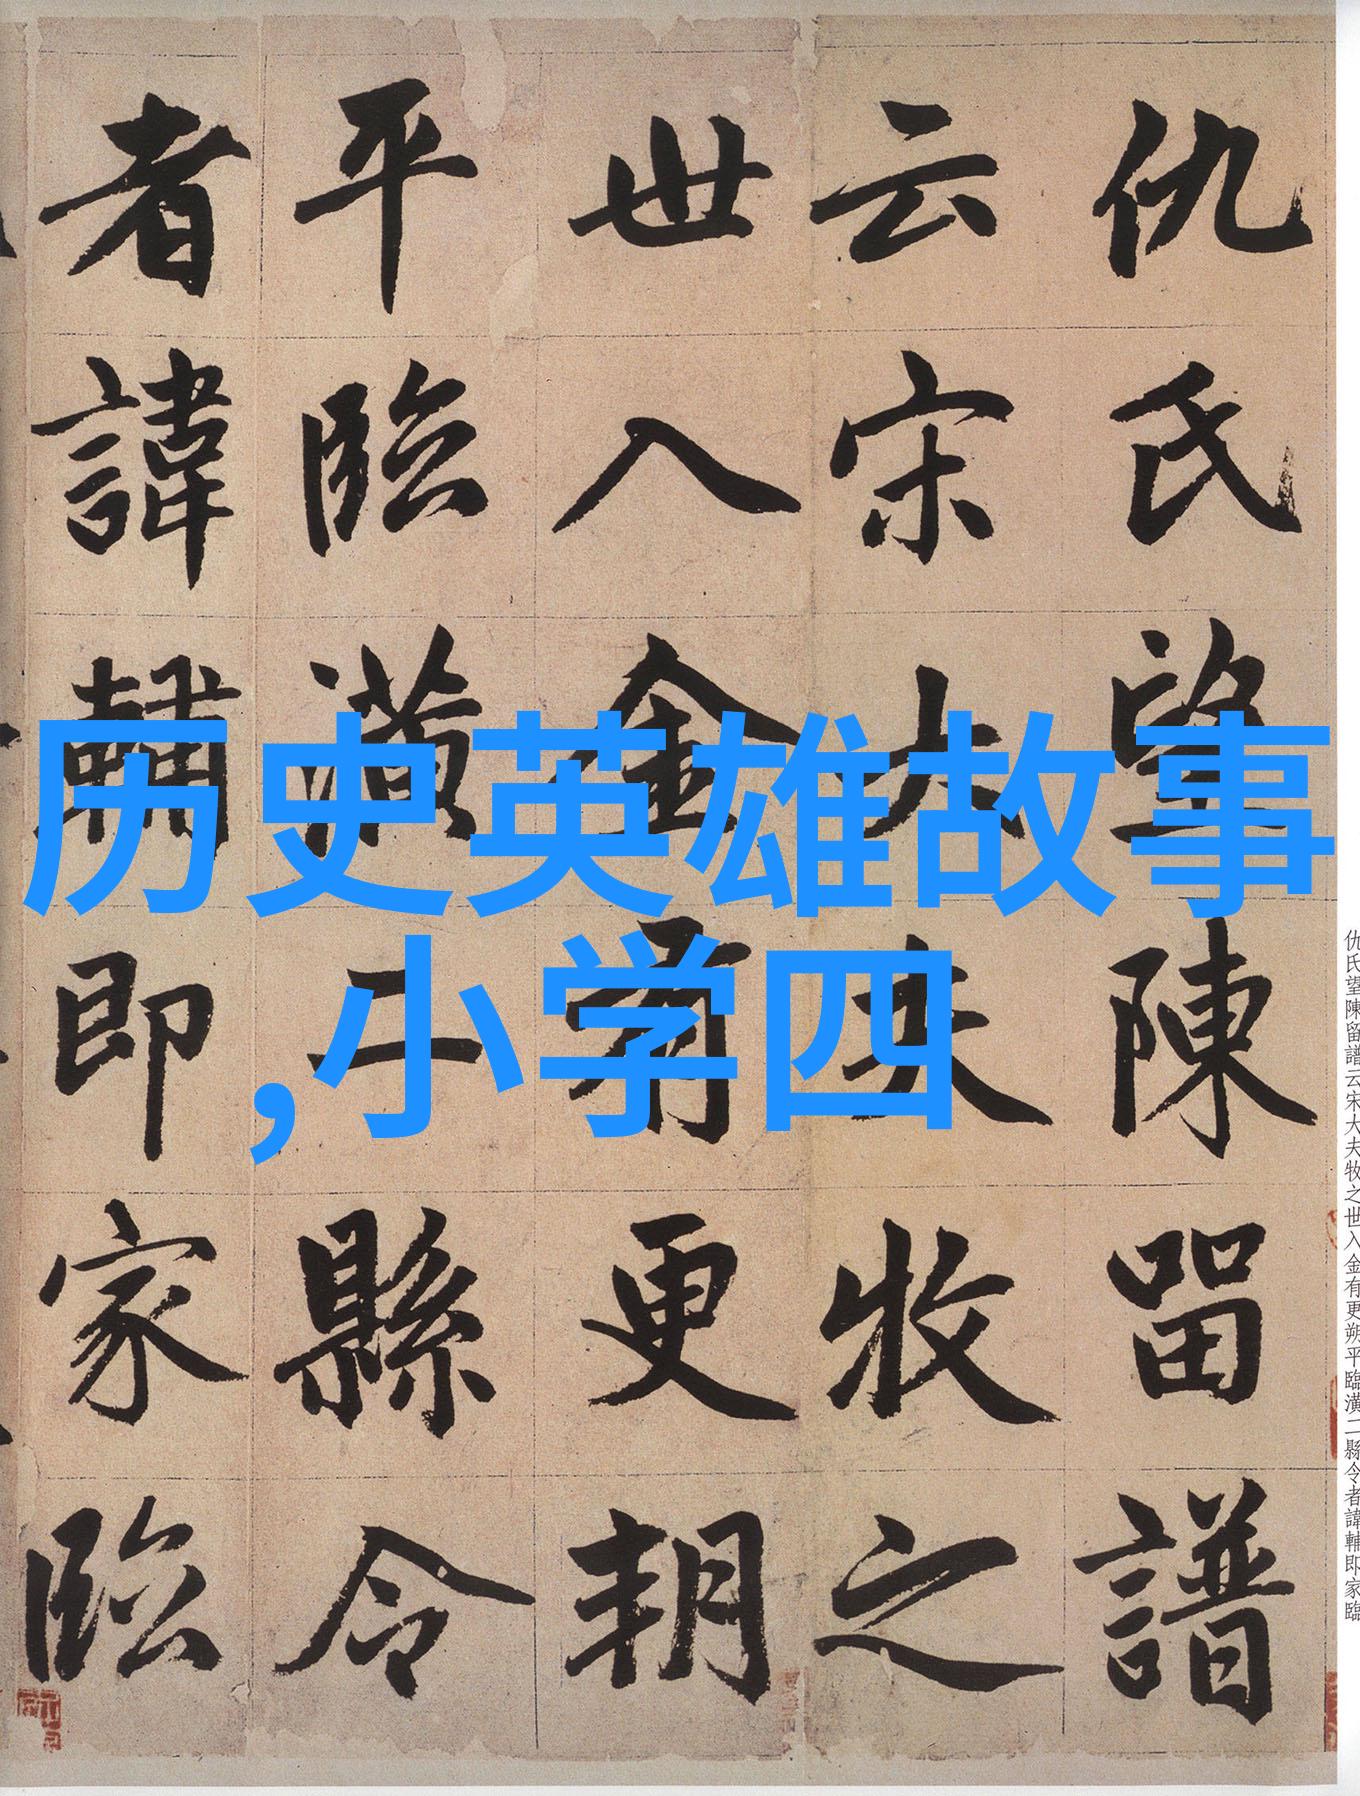 历史英雄故事
,小学四
仇氏望陳留譜
云宋大夫牧之
世入金有更朔
平臨潢二縣令
者諱輔即家臨
仇氏望陳留譜云宋大夫牧之世入金有更朔平臨潢二縣令者諱輔即家臨